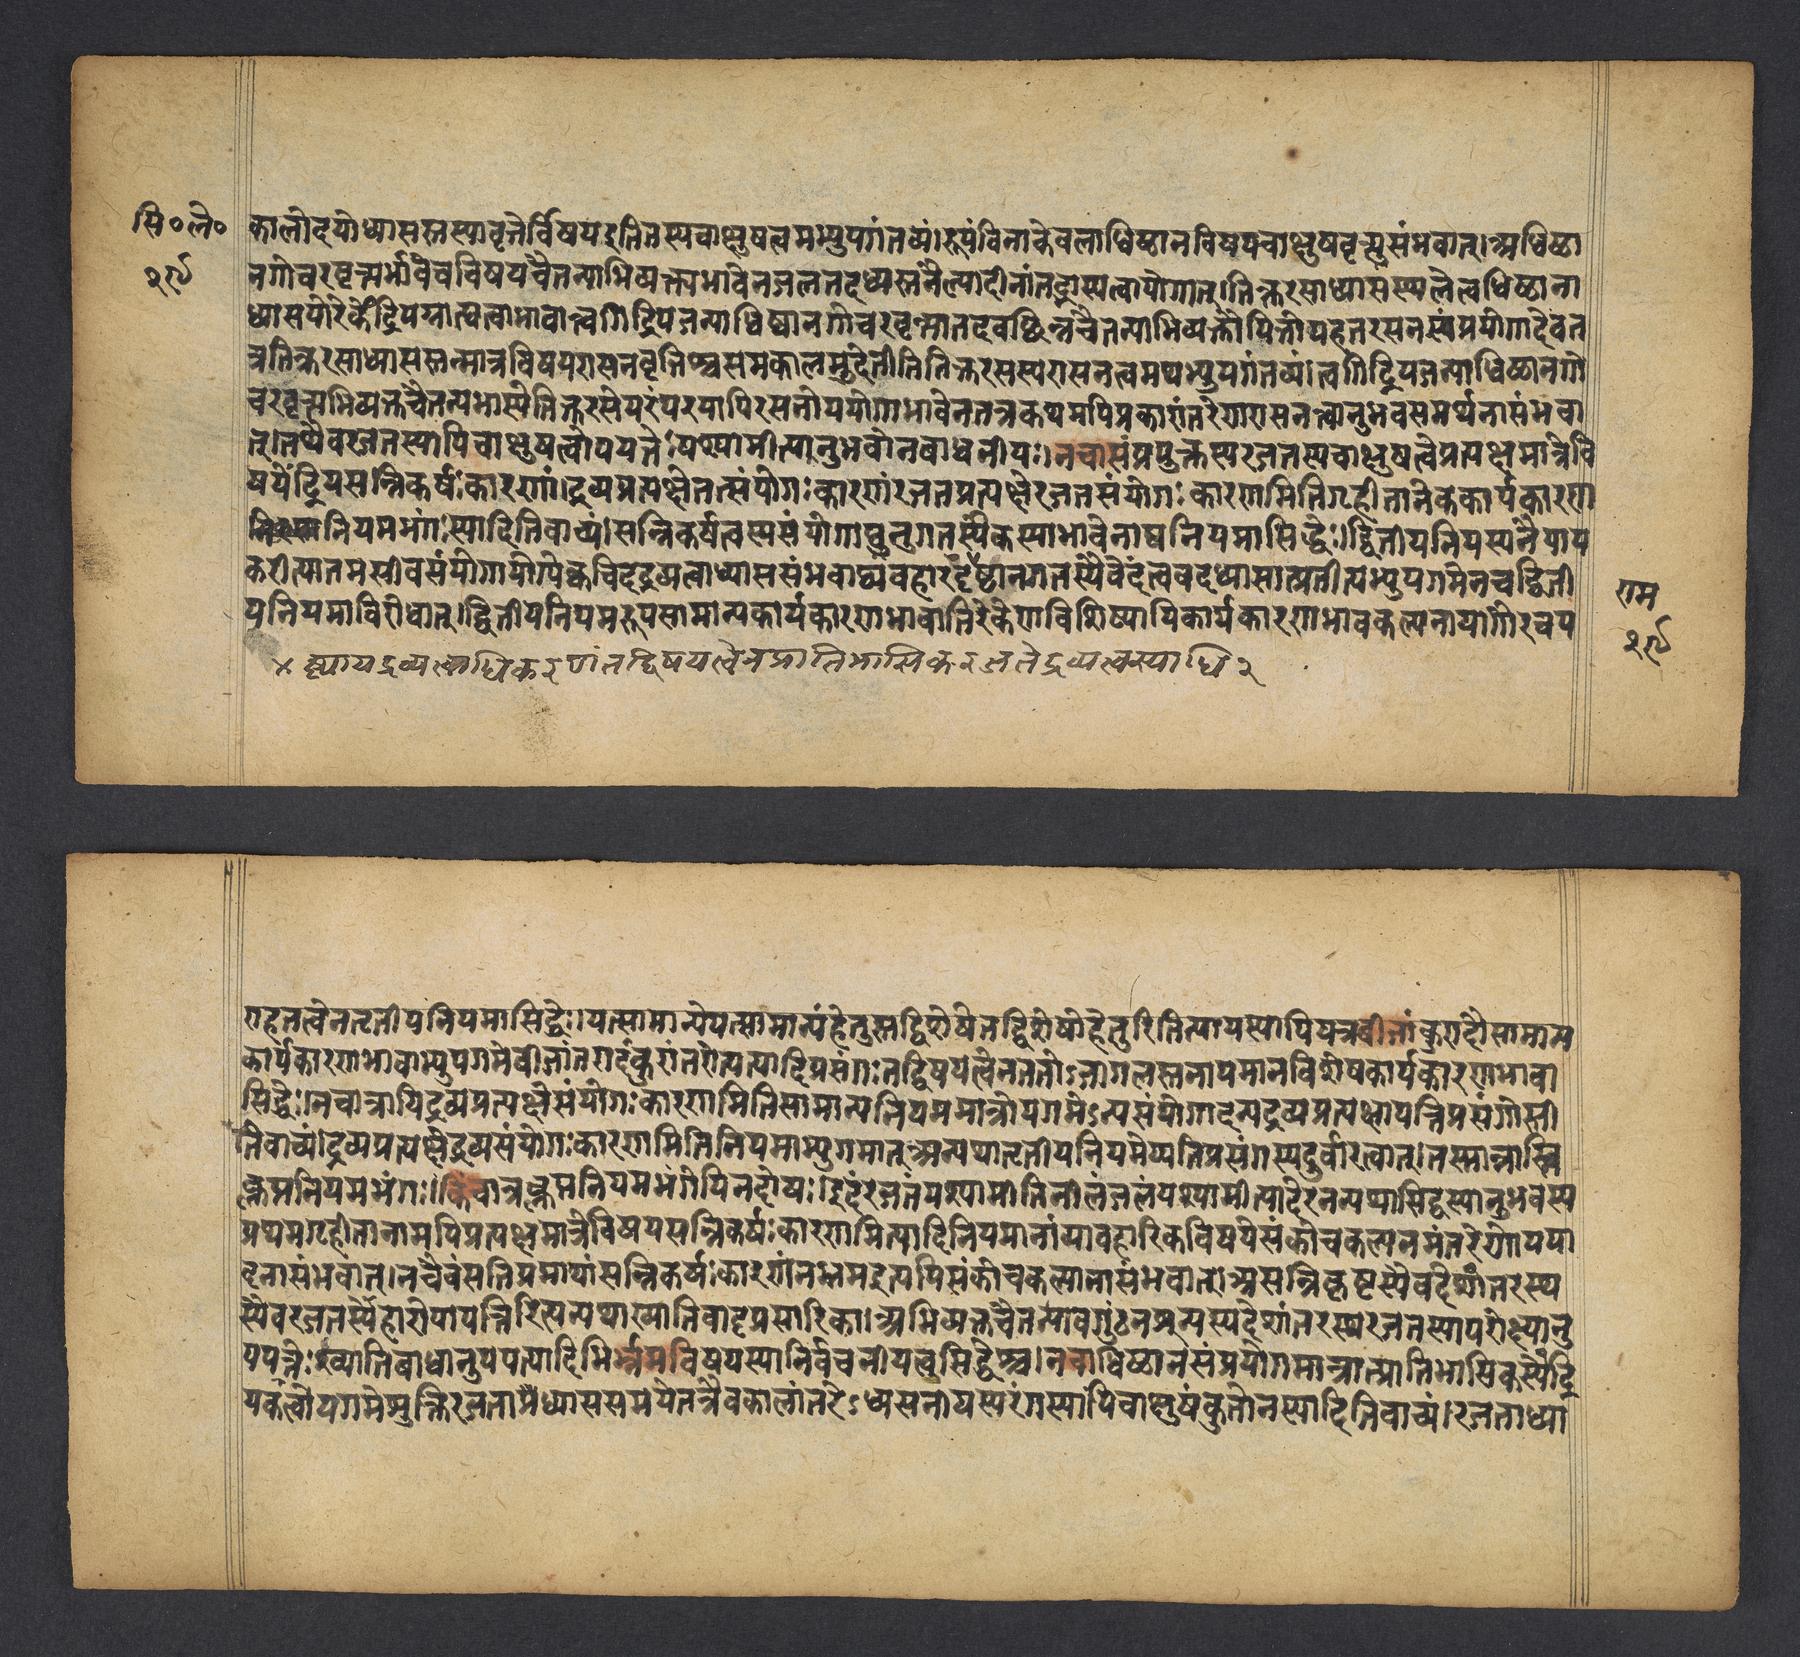 सि॰ले॰
२९
कालोदयोध्यासस्तस्यावृत्तेर्विषयइतितस्यचाक्षुषत्वमभ्युपगंतव्यं।रूपंविनाकेवलाधिष्ठानविषयचाक्षुषवृत्त्यसंभवात्।अधिष्ठा
नगोचरवृत्त्यभावेचविषयचैतन्याभिव्यक्त्यभावेनजलतदध्यस्तनैल्यादीनांतद्भास्यत्वायोगात्।तिक्तरसाध्यासस्थलेत्वधिष्ठाना
ध्यासयोरेकेंद्रियग्राह्यत्वाभावात्त्वगिंद्रियजन्याधिष्ठानगोचरवृत्त्यातदवछिन्नचैतन्याभिव्यक्तौपित्तोपहतरसनसंप्रयोगादेवत
त्रतिक्तरसाध्यासस्तन्मात्रविषयरासनवृत्तिश्चसमकालमुदेतीतितिक्तरसस्यरासनत्वमप्यभ्युपगंतव्यं।त्वगिंद्रियजन्याधिष्ठानगो
चरवृत्त्यभिव्यक्तचैतन्यभास्येतिक्तरसेपरंपरयापिरसनोपयोगाभावेनतत्रकथमपिप्रकारांतरेणरासनत्वानुभवसमर्थनासंभवा
त्।तथैवरजतस्यापिचाक्षुषत्वोपपत्तेःपश्यामीत्यनुभवोनबाधनीयः।नचासंप्रयुक्तस्यरजतस्यचाक्षुषत्वेप्रत्यक्षमात्रेवि
षयेंद्रियसन्निकर्षःकारणं।द्रव्यप्रत्यक्षेतत्संयोगःकारणंरजतप्रत्यक्षेरजतसंयोगःकारणमितिगृहीतानेककार्यकारण
नियमभंगःस्यादितिवाच्यं।सन्निकर्षत्वस्यसंयोगाद्यनुगतस्यैकस्याभावेनाद्यनियमासिद्धेः।द्वितीयनियस्यनैयायि
करीत्यातमसीवसंयोगायोग्येक्वचिदद्रव्यत्वाध्याससंभवाद्व्यवहारदृष्ट्यानुगतस्यैवेदंत्ववदध्यासात्प्रतीत्यभ्युपगमेनचद्विती
यनियमाविरोधात्।द्वितीयनियमरूपसामान्यकार्यकारणभावातिरेकेणविशिष्यापिकार्यकारणभावकल्पनायागौरवप
राम
२९
४ ष्ट्यायद्रव्यत्वाधिकरणंतद्विषयत्वेनप्रातिभासिकरजतेद्रव्यत्वस्याधि २
राहतत्वेनतृतीयनियमासिद्धेः।यत्सामान्येयत्सामान्यंहेतुस्तद्विशेषेतद्विशेषोहेतुरितिन्यायस्यापियत्रबीजांकुरादौसामान्य
कार्यकारणभावाभ्युपगमेबीजांतरादंकुरांतरोत्पत्यादिप्रसंगःतद्विषयत्वेनततोऽजागलस्तनायमानविशेषकार्यकारणभावा
सिद्धेः।नचात्रापिद्रव्यप्रत्यक्षेसंयोगःकारणमितिसामान्यनियममात्रोपगमेऽन्यसंयोगादन्यद्रव्यप्रत्यक्षापत्तिप्रसंगोस्ती
तिवाच्यं।द्रव्यप्रत्यक्षेद्रव्यसंयोगःकारणमितिनियमाभ्युगमात्अन्यथातृतीयनियमेप्यतिप्रसंगस्यदुर्वारत्वात्।तस्मान्नास्ति
क्लृप्तनियमभंगः।किंचात्रक्लृप्तनियमभंगेपिनदोषः।इदंरजतंपश्यामीतिनीलंजलंपश्यामीत्यादेरनन्यथासिद्धस्यानुभवस्य
प्रथमगृहीतानामपिप्रत्यक्षमात्रेविषयसन्निकर्षःकारणमित्यादिनियमानांव्यावहारिकविषयेसंकोचकल्पनमंतरेणोपपा
दनासंभवात्।नचैवंसतिप्रमायांसन्निकर्षःकारणंनभ्रमइत्यपिसंकोचकल्पनासंभवात्।असन्निकृष्टस्यैवदेशांतरस्थ
स्यैवरजतस्येहारोपापत्तिरित्यन्यथाख्यातिवादप्रसारिका।अभिव्यक्तचैतन्यावगुंठनशून्यस्यदेशांतरस्थरजतस्यापरोक्ष्यानु
पपत्तेःख्यातिबाधानुपपत्यादिभिर्भ्रमविषयस्यानिर्वचनीयत्वसिद्धेश्च।नचाधिष्ठानसंप्रयोगमात्रात्प्रातिभासिकस्यैंद्रि
यकत्वोपगमेशुक्तिरजताध्याससमयेतत्रैवकालांतरेऽध्यसनीयस्यरंगस्यापिचाक्षुषंकुतोनस्यादितिवाच्यं।रजताध्या